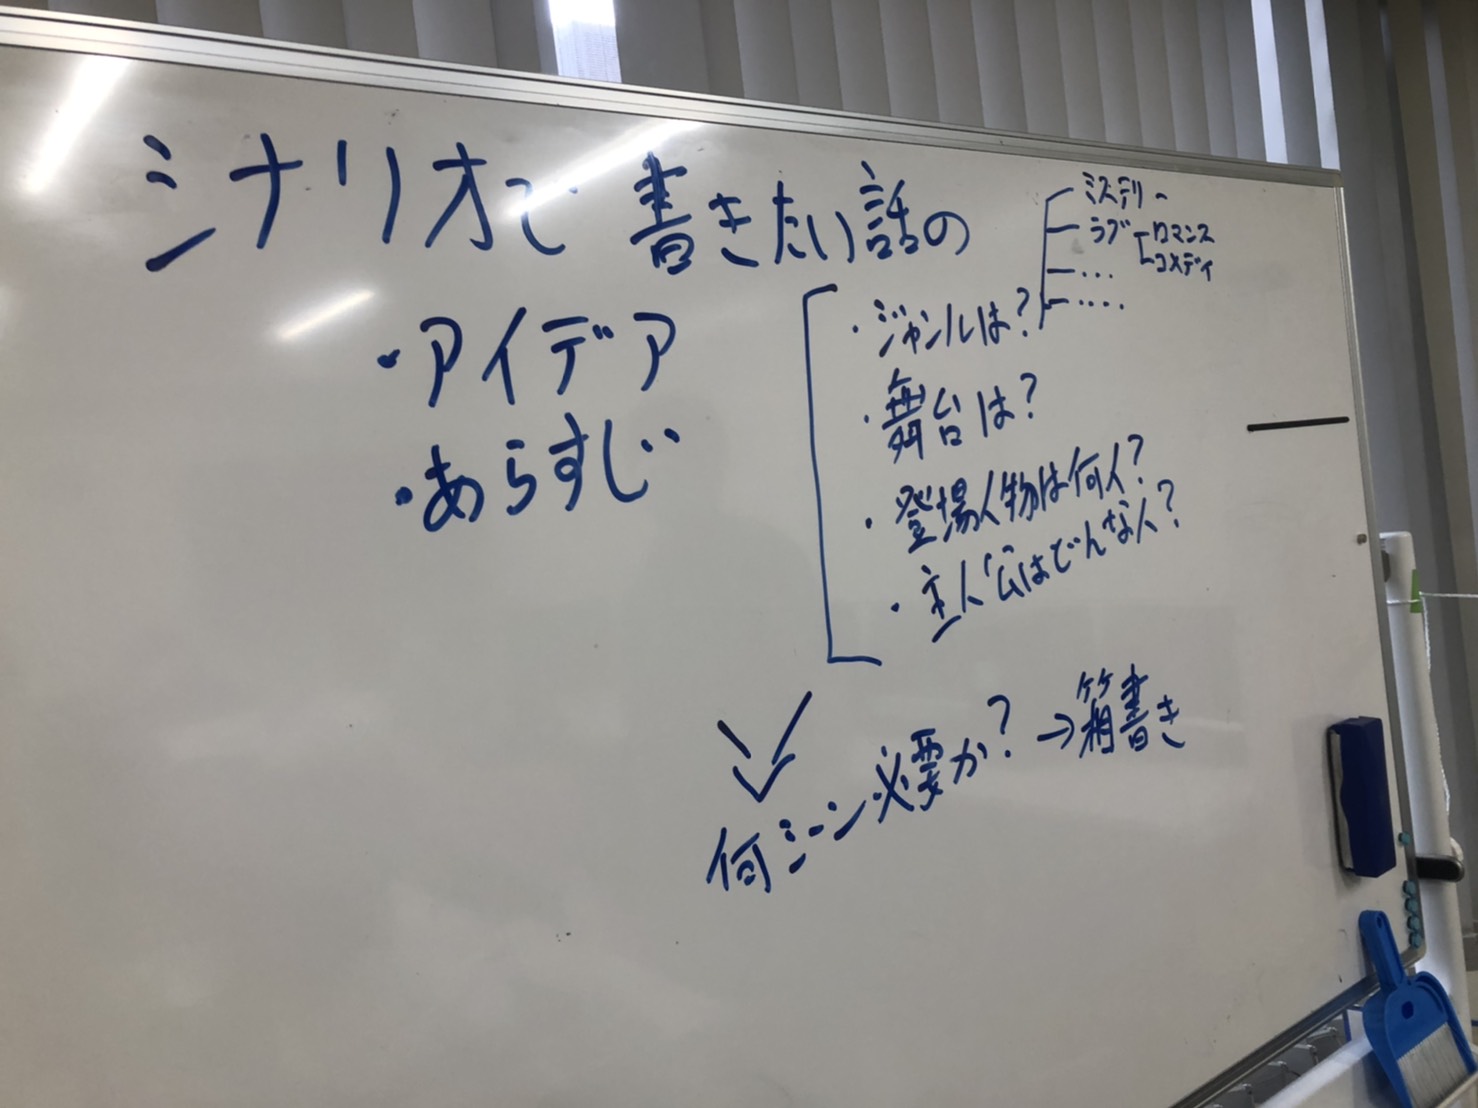 シナリオで書きたい話の
・アイデア
・あらすじ
・ジャンルは?
ミステリー
ラブ
ロマンス
コメディ
...
....
・舞台は?
・登場人物は何人?
・主人公はどんな人?
何シーン必要か?→箱書き